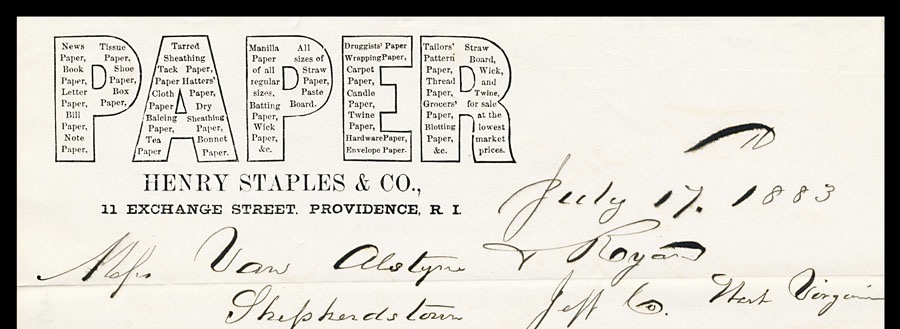 PAPER
News Paper, Book Paper, Letter Paper, Bill Paper, Note Paper.
Tissue Paper, Shoe Paper, Box Paper,
Tarred Sheathing
Tack Paper,
Paper Hatters'
Cloth Paper,
Paper Dry
Baleing Sheathing
Paper, Paper,
Tea Bonnet
Paper Paper.
Manilla Paper of all regular sizes, Batting Paper, Wick Paper, &c.
All sizes of Straw Paper, Paste Board.
Druggists' Paper
Wrapping Paper,
Carpet
Paper,
Candle
Paper,
Twine
Paper,
Hardware Paper,
Envelope Paper.
Tailors' Pattern Paper, Thread Paper, Grocers' Paper, Blotting Paper, &c.
Straw Board, Wick, and Twine, for sale at the lowest market prices.
HENRY STAPLES & CO.,
11 EXCHANGE STREET. PROVIDENCE, R. I.
July 17. 1883
Mess Van Alstyne &
Shepherdstown Jeff Co. West Virginia